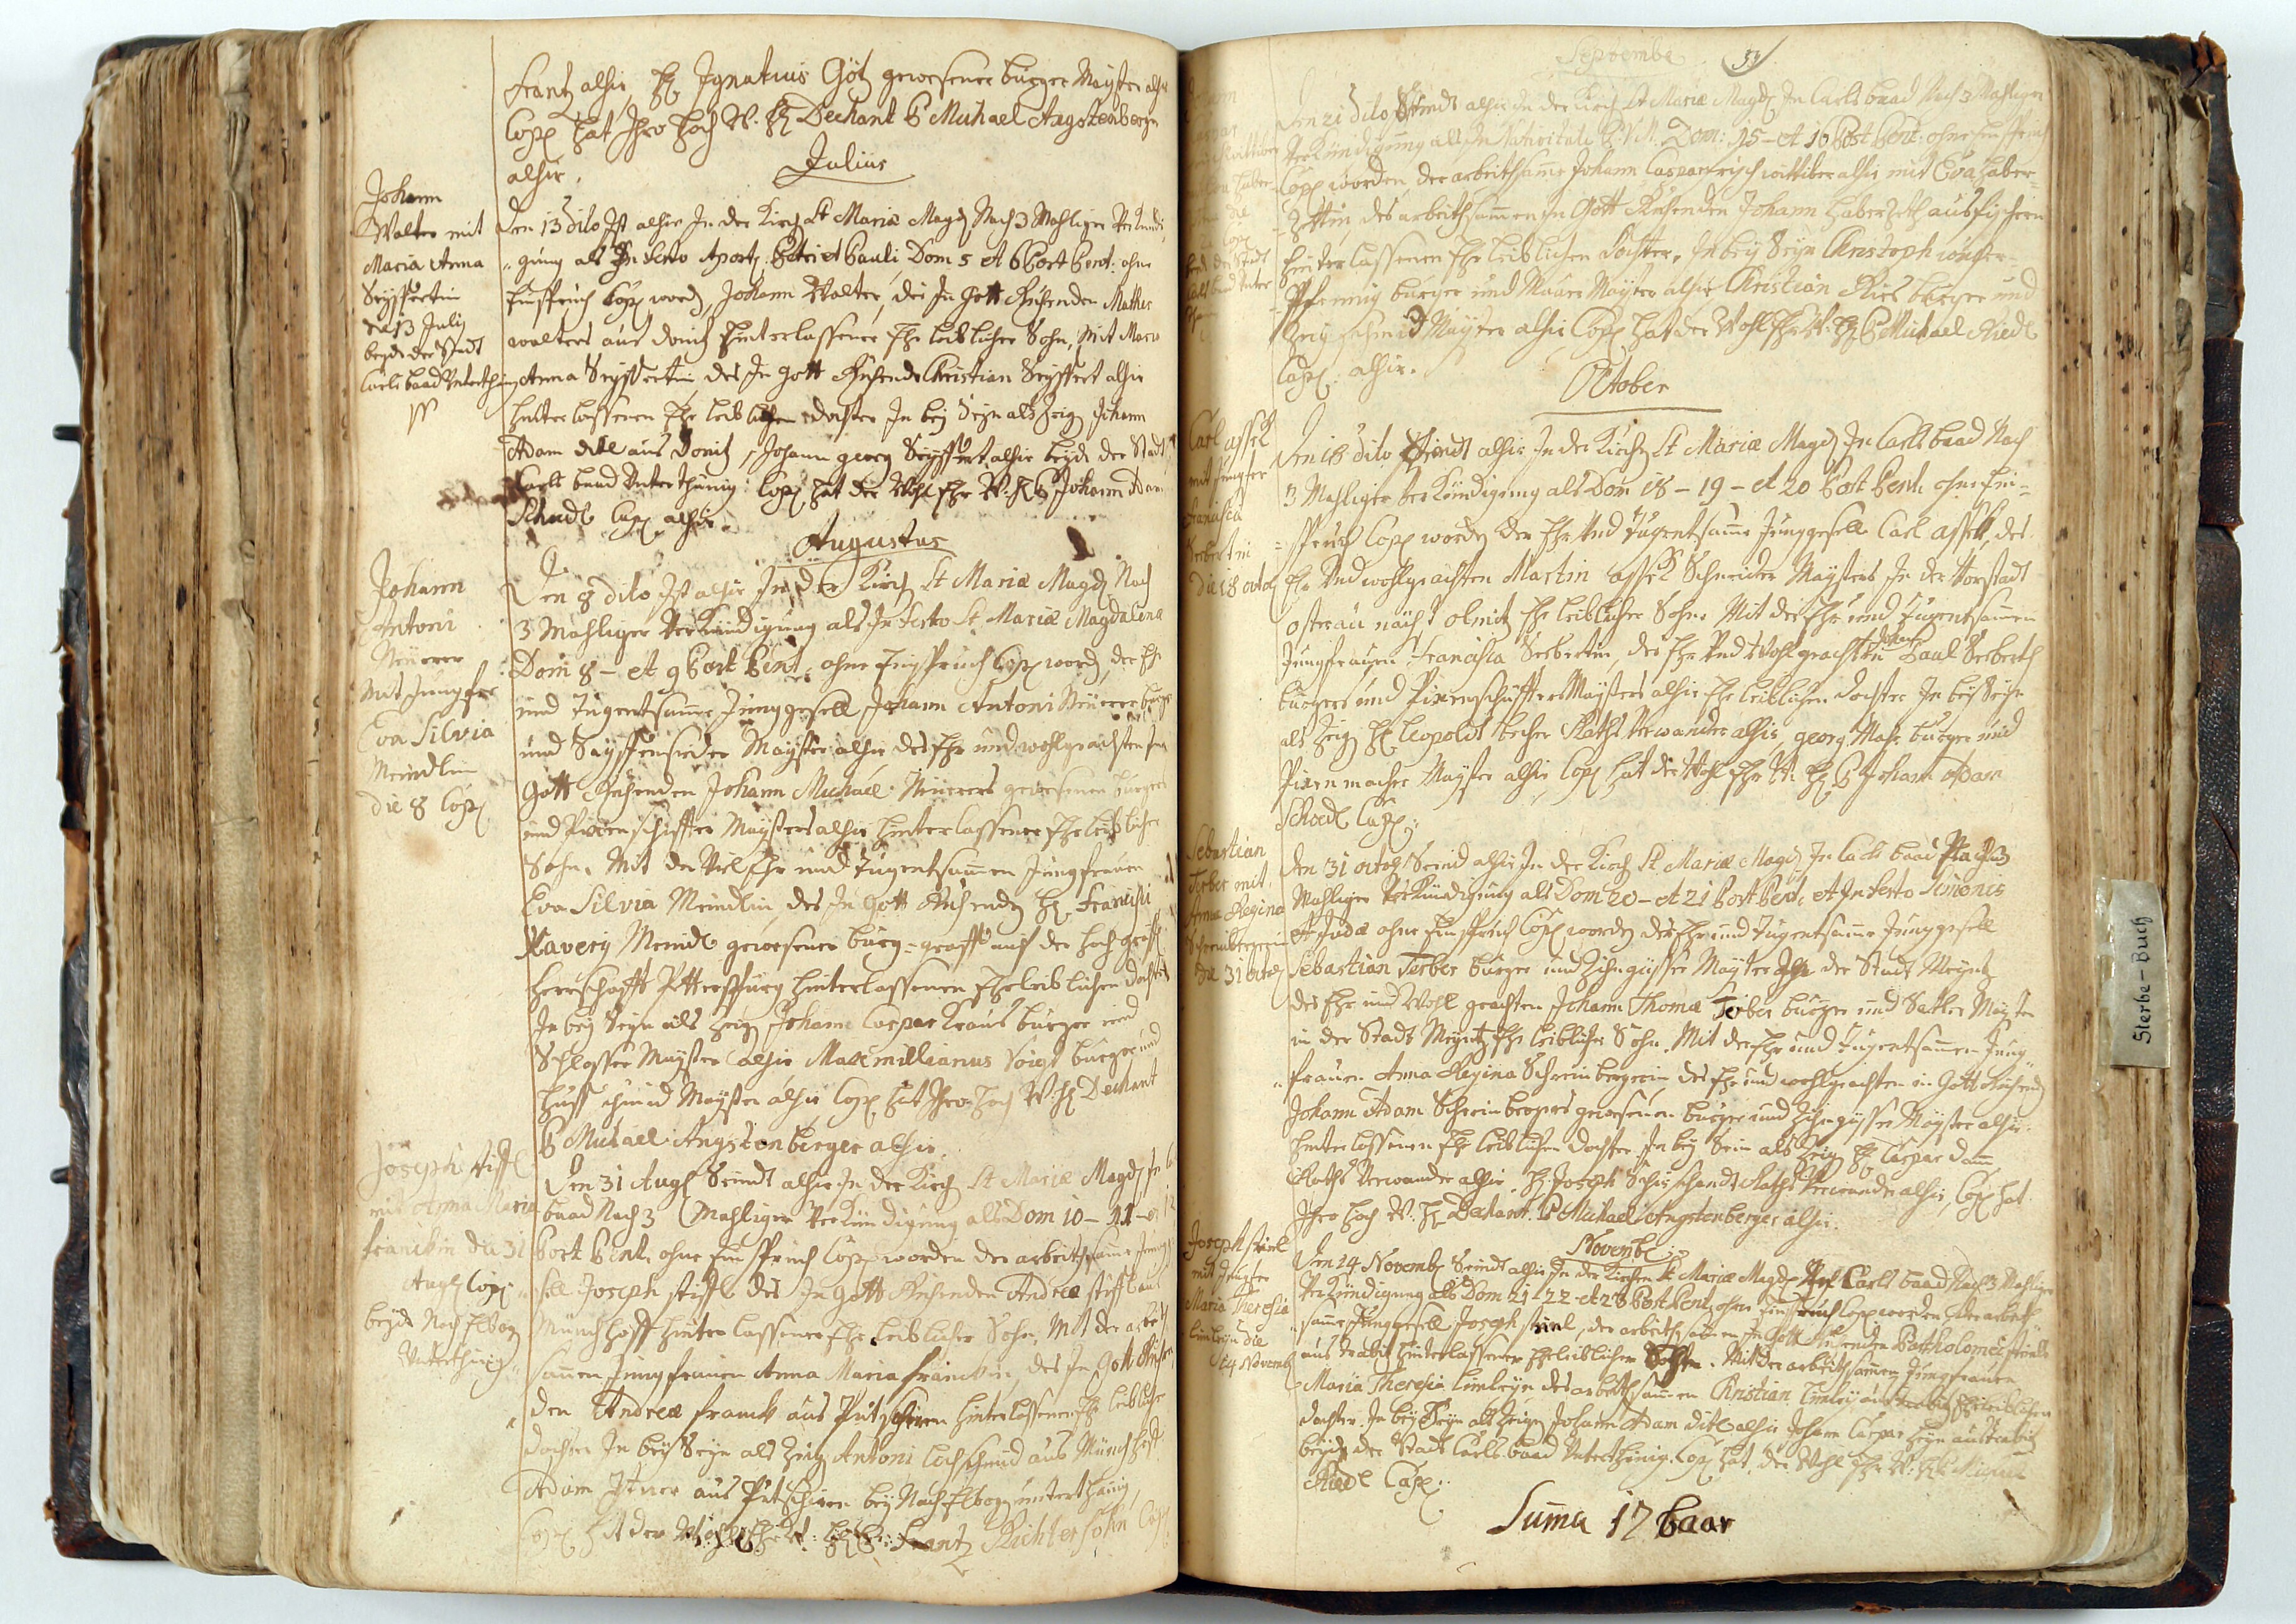 Frantz alhir, H. Ignatius Götz gewesener burger Mayster alhir
Cop hat Ihro Hoch W. H. Dechant P Michael Angstenberger
alhir.
Julius
Johann
Walter mit
Maria Anna
Seyffertin
die 13 July
beyde der Stadt
Carls baad Unterthänig
Den 13 dito Ist alhir In der Kirch St Mariæ Magd Nach 3 Mahliger Verkundi
gung als In festo Apost. Petri et Pauli, Dom 5 et 6 Post Pent: ohne
Einspruch Cop word, Johann Walter, des In Gott Ruhenden Mathes
walters aus Donitz hinterlassener Ehe leiblicher Sohn, Mit Maria
Anna Seyffertin des In Gott Ruhende Christian Seyffert alhir
hinterlassenen Ehe leiblichen dochter In bey Seyn als Zeig Johann
Adam ditl aus Donitz, Johann georg Seyffert alhir beyde der Stadt
Carls baad Unterthänig. Cop hat der Wohl Ehr W. H. P Johann Adam
Schedl Cap alhir.
Augustus
Johann
Antoni
Neüerer
Mit Jungfer
Eva Silvia
Meindlin
die 8 Cop
Den 8 dito Ist alhir In der Kirch St Mariæ Magd Nach
3 Mahliger Verkündigung als In festo St Mariæ Magdalenæ
Dom 8 - et 9 Post Pent: ohne Einspruch Cop word, der Ehr
und Tugentsamme Junggesell Johann Antoni Neüerer burger
und Sayffensieder Mayster alhir des Ehr und wohlgeachten In
Gott Ruhenden Johann Michael Neüerers gewesenen burgers
und Pixenschiffter Maysters alhir hinterlassener Eheleiblicher
Sohn. Mit der Viel Ehr und Tugentsammen Jungfrauen
Eva Silvia Meindlin, des In Gott Ruhende H. Francisci
Xavery Meindl gewesener burg-graff auf der Hoch gräfl
Herrschafft Petterspurg hinterlassenen Eheleiblichen dochter
In bey Seyn als Zeig Johann Caspar Kraus burger und
Schlosser Mayster alhir Maximillianus Voigt burger und
Huff schmid Mayster alhir Cop hat Ihro Hoch W. H. Dechant
P Michael Angstenberger alhir.
Joseph stiffl
mit Anna Maria
franckin die 31
Aug Cop
beyde Nach Elbog
Unterthänig
Den 31 Aug Seindt alhir In der Kirch St Mariæ Magd In Carls
baad Nach 3 Mahliger Verkündigung als Dom 10 - 11 - et 12
Post Pent: ohne Einspruch Cop worden der arbeithsamme Jungge
sell Joseph stiffl des In Gott Ruhenden Andreæ stiffl aus
Münchhoff hinterlassener Ehe leiblicher Sohn, Mit der arbeith
samen Jungfrauen Anna Maria franckin, des In Gott Ruhen
den Andreæ franck aus Putschiren hinterlassenen Ehe leiblichen
dochter In bey Seyn als Zeig Antoni lochschmid aus Münchhoff
Adam Itner aus Putschiren bey Nach Elbog unterthänig,
Cop hat der Wohl Ehr W. H. P: Frantz Richtersohn Cap
Septembr
Den 21 dito Seindt alhir In der Kirch St Mariæ Magd In Carls baad Nach 3 Mahliger
Verkündigung als In Nativitate B. V. M. Dom: 15 - et 16 Post Pent: ohne Einspruch
Cop worden, der arbeithsame Johann Caspar frisch wittiber alhir mit Eva Haber
zettin, des arbeithsammen In Gott Ruhenden Johann Haberzeth aus fischern
hinterlassenen Ehe leiblichen dochter, In bey Seyn Christoph
Pfennig burger und Maurer Mayster alhir Christian Ries burger und
Zeig schmid Mayster alhir Cop hat der Wohl Ehr W. H. P Michael Riedl
Cap. alhir.
October
Carl assek
mit Jungfer
francisca
Seeberthin
die 18 octob
Den 18 dito Seindt alhir In der Kirch St Mariæ Magd In Carls baad Nach
3 Mahliger Verkündigung als Dom 18 - 19 - et 20 Post Pent: ohne Ein=
=spruch Cop worden der Ehr und Tugentsamme Junggesell Carl assek, des
Ehr und wohlgeachten Martin assek Schneider Maysters In der Vorstadt
osterau nächst olmitz Ehe leiblicher Sohn. Mit der Ehr und Tugentsammen
Jungfrauen francisca Seebertin, des Ehr und Wohlgeachten Johann Paul Seeberth
burgers und Pixenschiffters Maysters alhir Ehe leiblichen dochter In bey Seyn
als Zeig H. leopoldt becher Raths Verwander alhir, georg Mahr burger und
Pixen macher Mayster alhir, Cop hat der Wohl Ehr W. H. P Johann Adam
Schedl Cap:
Sebastian
Ferber mit
Anna Regina
Schreinbergerin
die 31 octob
Den 31 octob Seind alhir In der Kirch St Mariæ Magd In Carls baad Nach 3
Mahliger Verkündigung als Dom 20 - et 21 Post Pent: et In festo Simonis
et Judæ ohne Einspruch Cop worden der Ehr und Tugentsamme Junggesell
Sebastian Ferber burger und Zihngüsser Mayster der Stadt Meyntz
des Ehr und Wohl geachten Johann Thomæ Ferber burger und Satler Mayster
in der Stadt Meyntz Ehe leiblicher Sohn. Mit der Ehr und Tugentsammen Jung
frauen Anna Regina Schreinbergerin des Ehr und wohlgeachten in Gott Ruhend
Johann Adam Schreinbergers gewesenen burger und Zihngüsser Mayster alhir
hinterlassenen Ehe leiblichen dochter In bey Sein als Zeig H. Caspar Damm
Raths Verwander alhir. H. Joseph Raths Verwander alhir, Cop hat
Ihro Hoch W. H. Dechant P Michael Angstenberger alhir.
Novembr
Joseph
mit Jungfer
Maria Theresia
limleyin die
14 Novemb
Den 14 Novemb Seindt alhir In der Kirchen St Mariæ Magd Carls baad Nach 3 Mahliger
Verkündigung als Dom 21 - 22 - et 23 Post Pent: ohne Einspruch Cop worden, der arbeith
same Junggesell Joseph, des arbeithsammen In Gott Ruhenden Bartholomei
aus hinterlassener Eheleiblicher Sohn. Mit der arbeithsammen Jungfrauen
Maria Theresia limleyin des arbeithsammen Christian limley aus Eheleiblichen
dochter. In bey Seyn als Zeigen Johann Adam ditl alhir Johann Caspar
beyde der Stadt Carls baad Unterthänig. Cop hat der Wohl Ehr W. H. P Michael
Riedl Cap:
Suma 17 baar
Sterbe-Buch